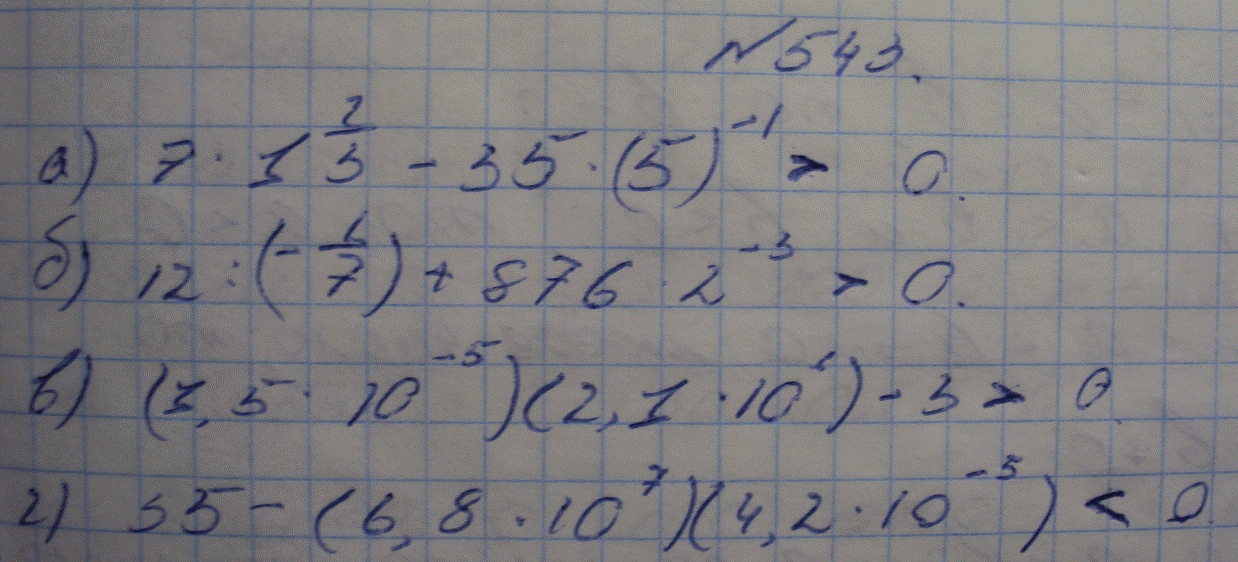 №543.
а) 7 · 1 2/3 - 35 · (5)⁻¹ > 0.
б) 12 : (- 1/7) + 876 · 2⁻³ > 0.
в) (1,5 · 10⁻⁵)(2,1 · 10¹) - 3 > 0.
г) 35 - (6,8 · 10⁷)(4,2 · 10⁻⁵) < 0